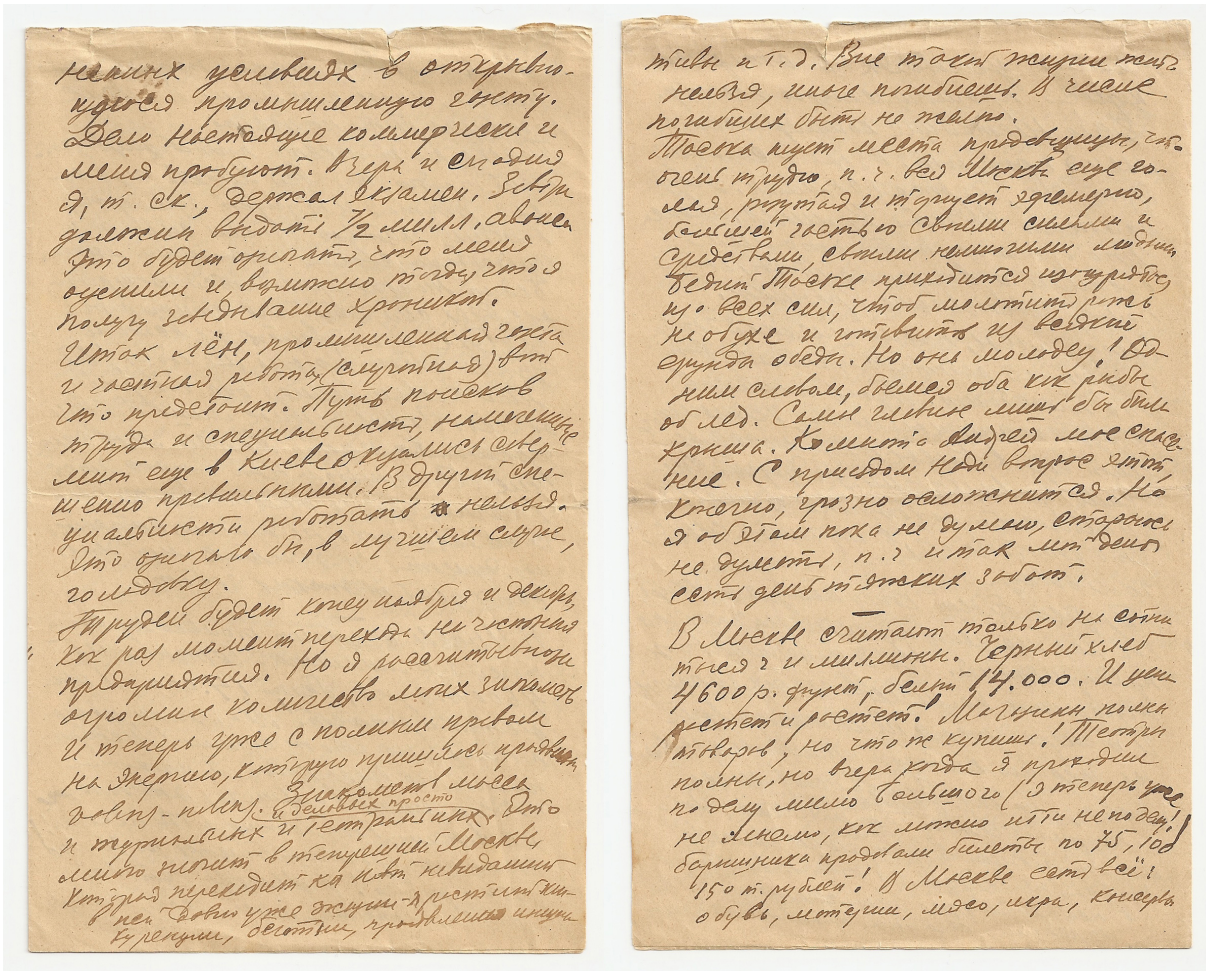 неких условиях в открывшую-
щуюся промышленную газету.
Дело настоящее коммерческое и
меня пробуют. Вчера и сегодня
я, т. ск., держал экзамен. Завтра
должны выдать 1/2 милл. аванса
Это будет означать, что меня
оценили и, возможно тогда, что я
получу заведывание хроникой.
Итак лён, промышленная газета
и частная работа (случайная) вот
что предстоит. Путь поисков
труда и специальности, намеченные
мной еще в Киеве оказались совер-
шенно правильными. В другой спе-
циальности работать нельзя.
Это означало бы, в лучшем случае,
голодовку.
Труден будет конец ноября и декабрь,
как раз момент перехода на частные
предприятия. Но я рассчитываю на
огромное количество моих знакомств
и теперь уже с полным правом
на энергию, которую пришлось проявить
volens-nolens. Знакомств масса
и деловых просто
и журнальных и театральных. Это
много значит в теперешней Москве,
которая переходит к новой невиданной в
ней давно уже жизни - яростной кон-
куренции, беготни, проявления инициа-
тивы и т.д. Вне такой жизни жить
нельзя, иначе погибнешь. В числе
погибших быть не желаю.
Таська ищет места продавщицы, что
очень трудно, п. ч. вся Москва еще го-
лая, разутая и торгует эфемерно,
большей частью своими силами и
средствами, своими немногими людьми
Бедной Таське приходится изощряться
изо всех сил, чтоб молотить рожь
на обухе и готовить из всякой
ерунды обеды. Но она молодец! Од-
ним словом, бьемся оба как рыбы
об лед. Самое главное лишь бы была
крыша. Комната Андрея мое спасе-
ние. С приездом Нади вопрос этот,
конечно, грозно осложнится. Но
я об этом пока не думаю, стараюсь
не думать, п. ч. и так мой день
есть день тяжких забот.
В Москве считают только на сотни
тысяч и миллионы. Черный хлеб
4600 р. фунт, белый 14.000. И цена
растет и растет! Магазины полны
товаров, но что ж купишь! Театры
полны, но вчера когда я проходил
по делу мимо Большого (я теперь уже
не мыслю, как можно идти не по делу!)
барышники продавали билеты по 75, 100
150 т. рублей! В Москве есть всё:
обувь, материи, мясо, икра, консервы